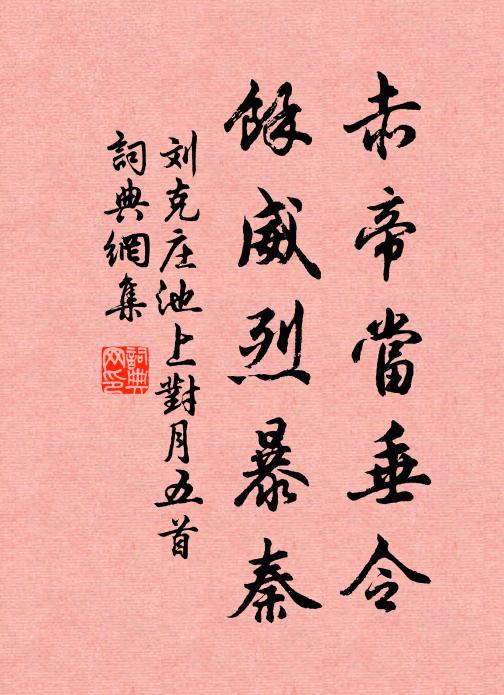 赤帝當垂令
餘威烈暴秦
刘克庄池上對月五首
詞典網集
詞典
网印